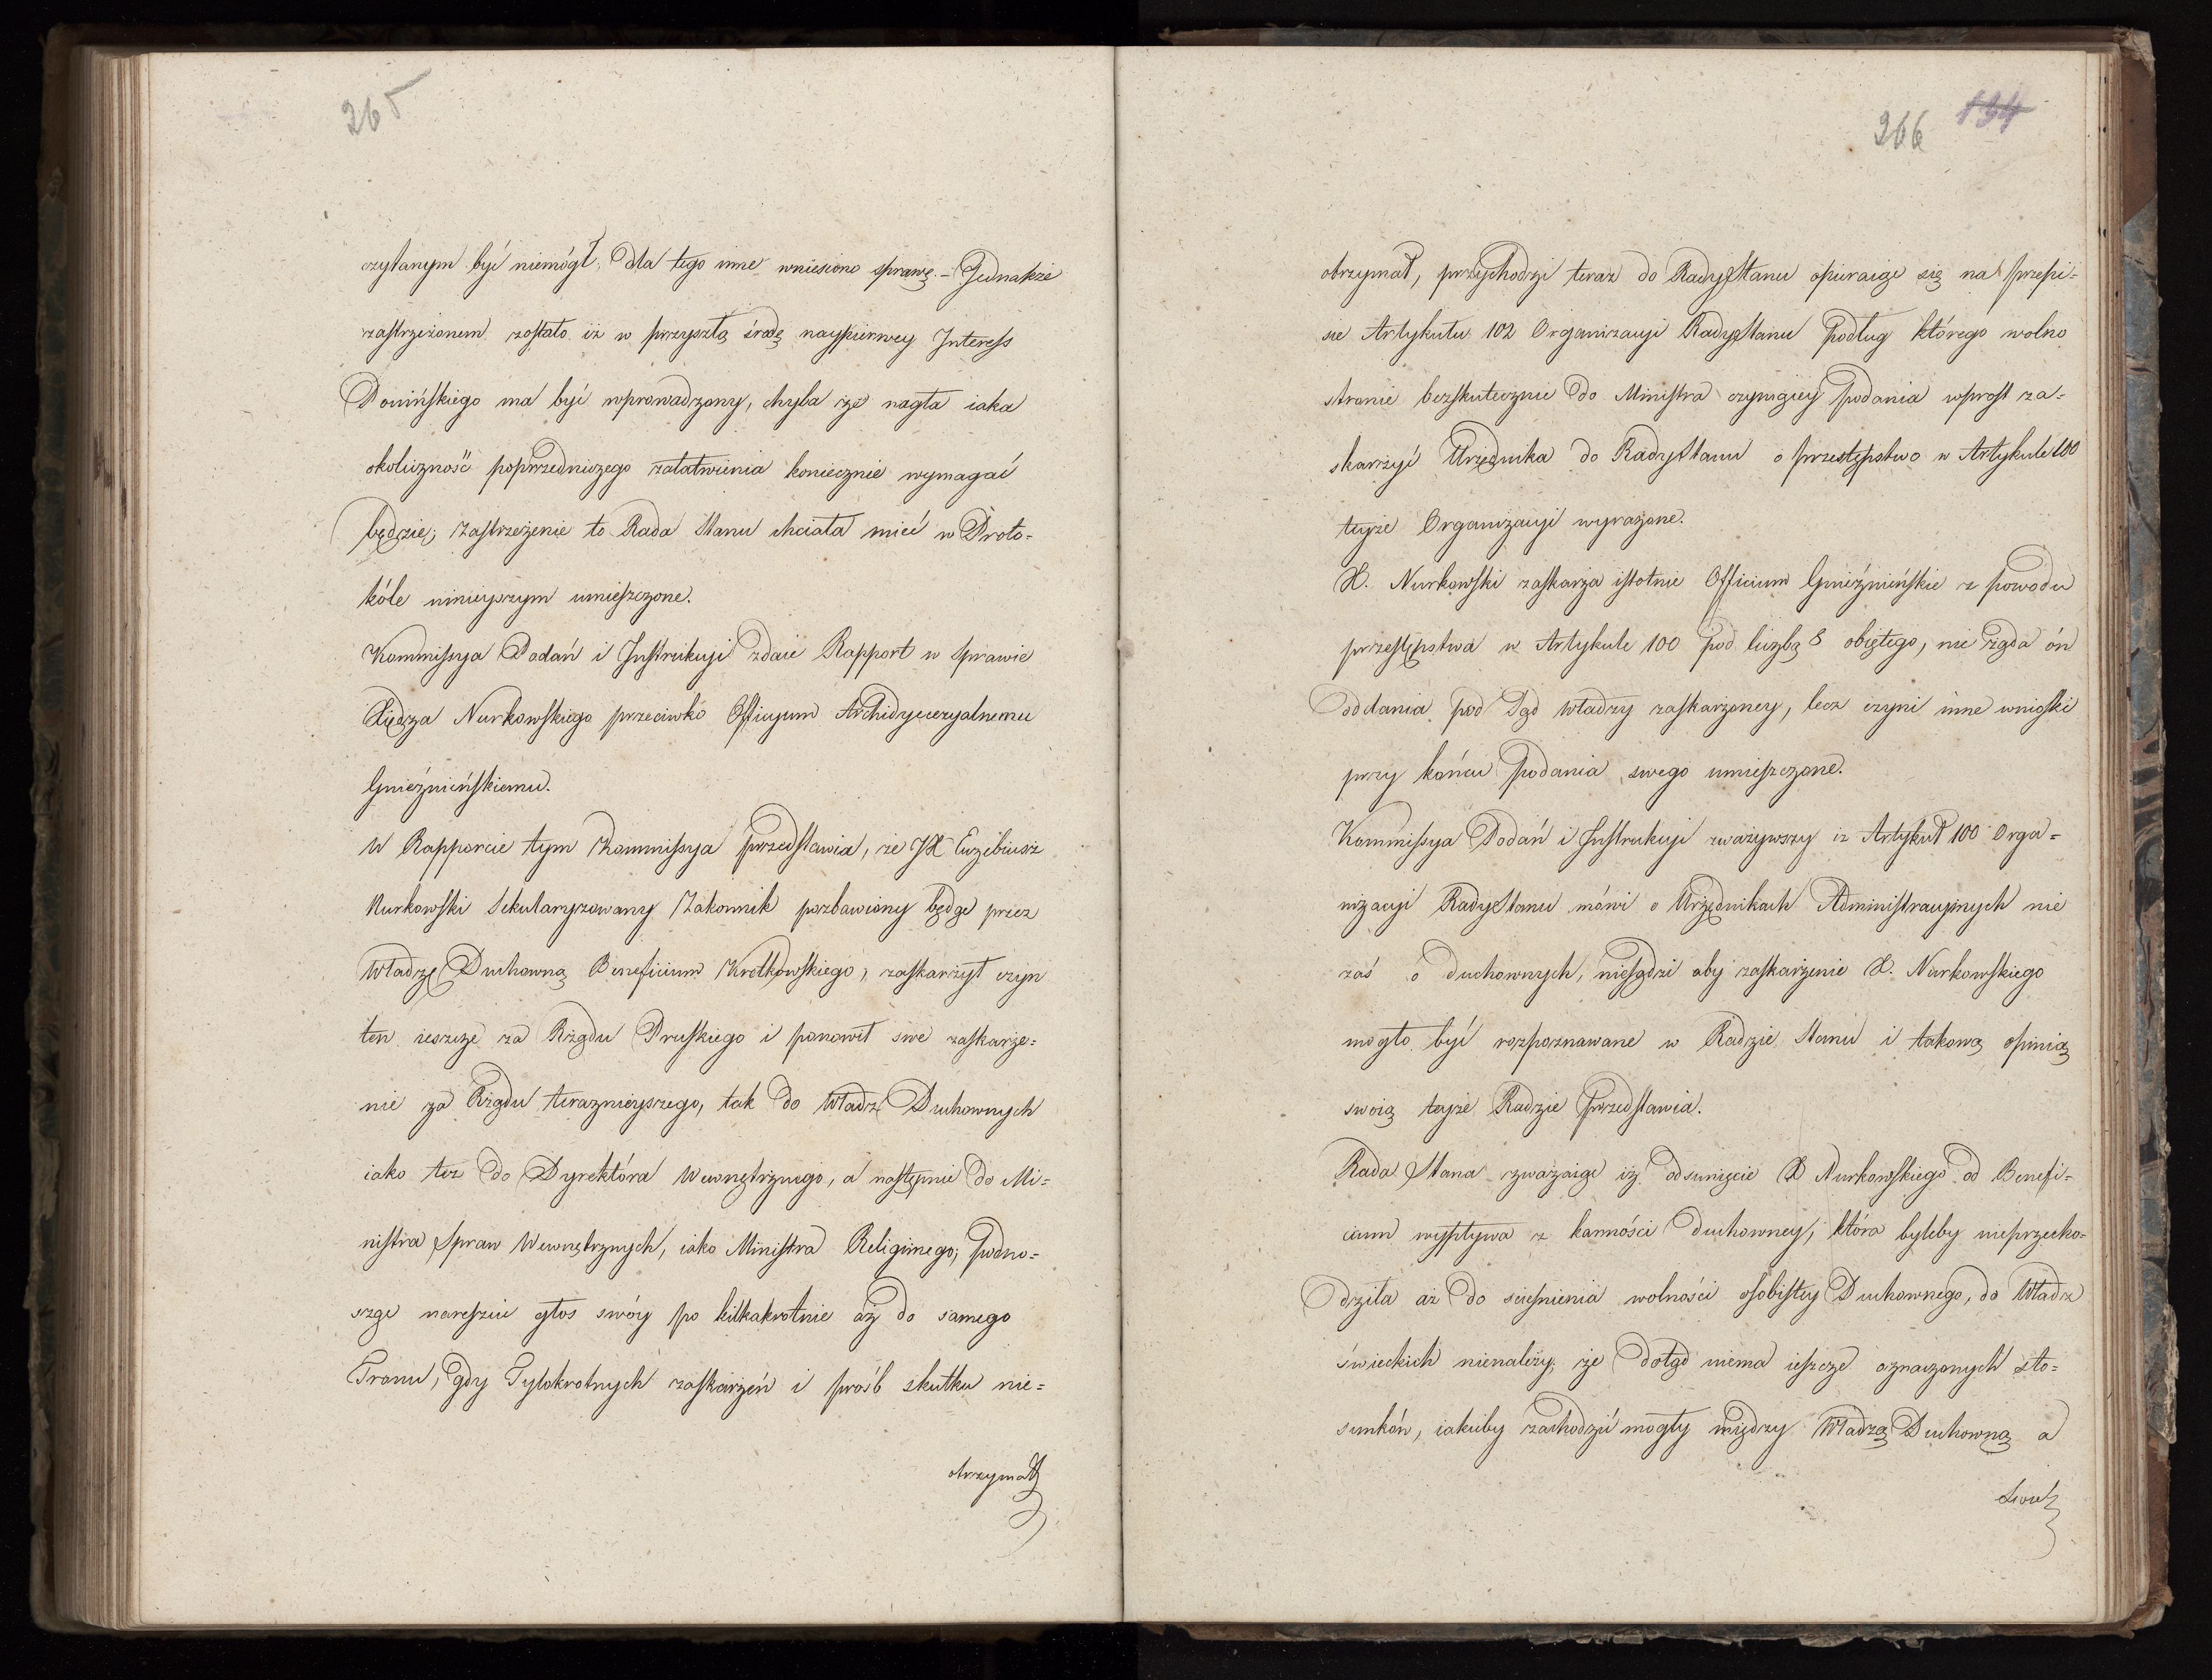 265
czytanym być niemógł, dla tego inne wniesiono sprawę. – Jednakże
zastrzeżonem zostało iż w przyszłą środę naypierwey Interess
Donińskiego ma być wprowadzony, chyba że nagła iaka
okoliczność poprzedniczego załatwienia koniecznie wymagać
będzie; zastrzeżenie to Rada Stanu chciała mieć w Proto-
kóle ninieyszym umieszczone.
Kommissya Podań i Instrukcyi zdaie Rapport w sprawie
Xiędza Nurkowskiego przeciwko Officyum Archidyecezyalnemu
Gnieźnieńskiemu.
W Rapporcie tym Kommissya przedstawia, że JX Euzebiusz
Nurkowski Sekularyzowany Zakonnik pozbawiony będąc przez
Władzę Duchowną Beneficium Krotkowskiego, zaskarżył czyn
ten ieszcze za Rządu Pruskiego i ponowił swe zaskarże-
nie za Rządu teraznieyszego, tak do Władz Duchownych
iako też do Dyrektóra Wewnętrznego, a następnie do Mi-
nistra Spraw Wewnętrznych, iako Ministra Religiinego; podno-
sząc nareszcie głos swóy po kilkakrotnie aż do samego
Tronu, gdy Tylokrotnych zaskarżeń i prośb skutku nie-
otrzymał
266 134
otrzymał, przychodzi teraz do Rady Stanu opieraiąc się na przepi-
sie Artykułu 102 Organizacyi Rady Stanu podług którego wolno
stronie bezskutecznie do Ministra czyniącey podania wprost za-
skarżyć Urzędnika do Rady Stanu o przestępstwo w Artykule 100
teyże Organizacyi wyrażone.
X. Nurkowski zaskarża istotnie Officium Gnieźnieńskie z powodu
przestępstwa w Artykule 100 pod liczbą 8 obiętego, nie żąda on
oddania pod Sąd Władzy zaskarżoney, lecz czyni inne wnioski
przy końcu podania swego umieszczone.
Kommissya Podań i Instrukcyi zważywszy iż Artykuł 100 Orga-
nizacyi Rady Stanu mówi o Urzędnikach Administracyinych nie
zaś o duchownych, niesądzi aby zaskarżenie X. Nurkowskiego
mogło być rozpoznawane w Radzie Stanu i takową opinią
swoią teyże Radzie przedstawia.
Rada Stanu zważaiąc iż odsunięcie X Nurkowskiego od Benefi-
cium wypływa z karności duchowney, która byleby nieprzecho-
dziła aż do scieśnienia wolności osobistey Duchownego, do Władz
świeckich nienależy, że dotąd niema ieszcze oznaczonych sto-
sunków, iakieby zachodzić mogły między Władzą Duchowną a